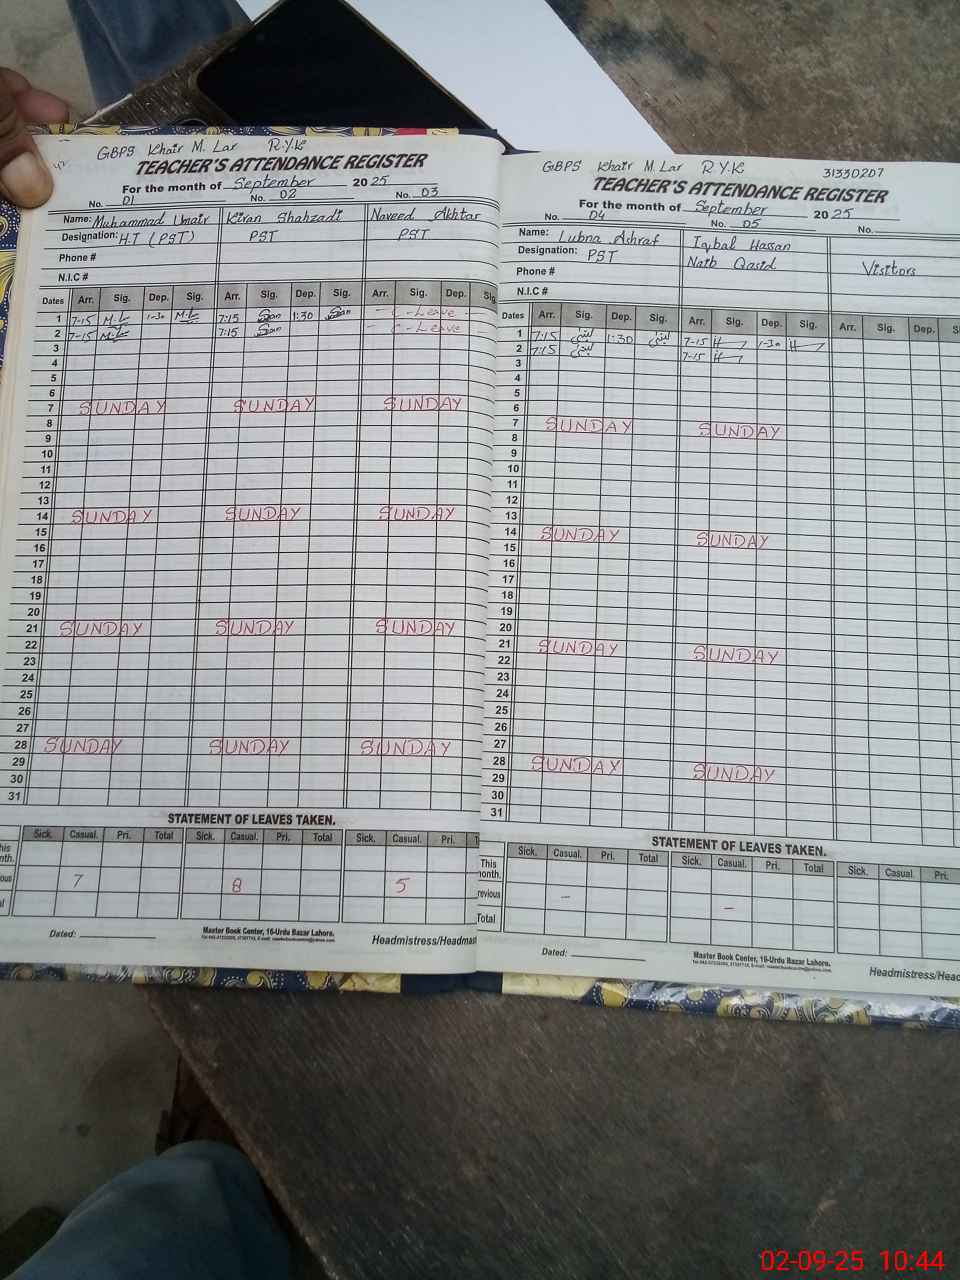 GBPS Khair M. Lar R.Y.K
TEACHER'S ATTENDANCE REGISTER
For the month of September 2025
No. 01 No. 02 No. 03
Name: Muhammad Umair Kiran Shahzadi Naveed Akhtar
Designation: H.T (PST) PST PST
Phone #
N.I.C #
Dates Arr. Sig. Dep. Sig. Arr. Sig. Dep. Sig. Arr. Sig. Dep. Sig
1 7-15 M.L 1-30 M.L 7:15 1:30 - C-Leave -
2 7-15 7:15 - C-Leave -
3
4
5
6
7 SUNDAY SUNDAY SUNDAY
8
9
10
11
12
13
14 SUNDAY SUNDAY SUNDAY
15
16
17
18
19
20
21 SUNDAY SUNDAY SUNDAY
22
23
24
25
26
27
28 SUNDAY SUNDAY SUNDAY
29
30
31
STATEMENT OF LEAVES TAKEN.
Sick. Casual. Pri. Total Sick. Casual. Pri. Total Sick. Casual. Pri. T
his
nth.
ious 7 8 5
al
Dated:
Master Book Center, 16-Urdu Bazar Lahore.
Headmistress/Headmas
GBPS Khair M. Lar R.Y.K 31330207
TEACHER'S ATTENDANCE REGISTER
For the month of September 2025
No. 04 No. 05 No.
Name: Lubna Ashraf Iqbal Hassan
Designation: PST Naib Qasid Visitors
Phone #
N.I.C #
Dates Arr. Sig. Dep. Sig. Arr. Sig. Dep. Sig. Arr. Sig. Dep. S
1 7:15 لبنیٰ 1:30 لبنیٰ 7-15 H 1-30 H
2 7:15 لبنیٰ 7-15 H
3
4
5
6
7 SUNDAY SUNDAY
8
9
10
11
12
13
14 SUNDAY SUNDAY
15
16
17
18
19
20
21 SUNDAY SUNDAY
22
23
24
25
26
27
28 SUNDAY SUNDAY
29
30
31
STATEMENT OF LEAVES TAKEN.
Sick. Casual. Pri. Total Sick. Casual. Pri. Total Sick. Casual. Pri.
This
month.
revious - -
Total
Dated:
Master Book Center, 16-Urdu Bazar Lahore.
Headmistress/Heac
02-09-25 10:44